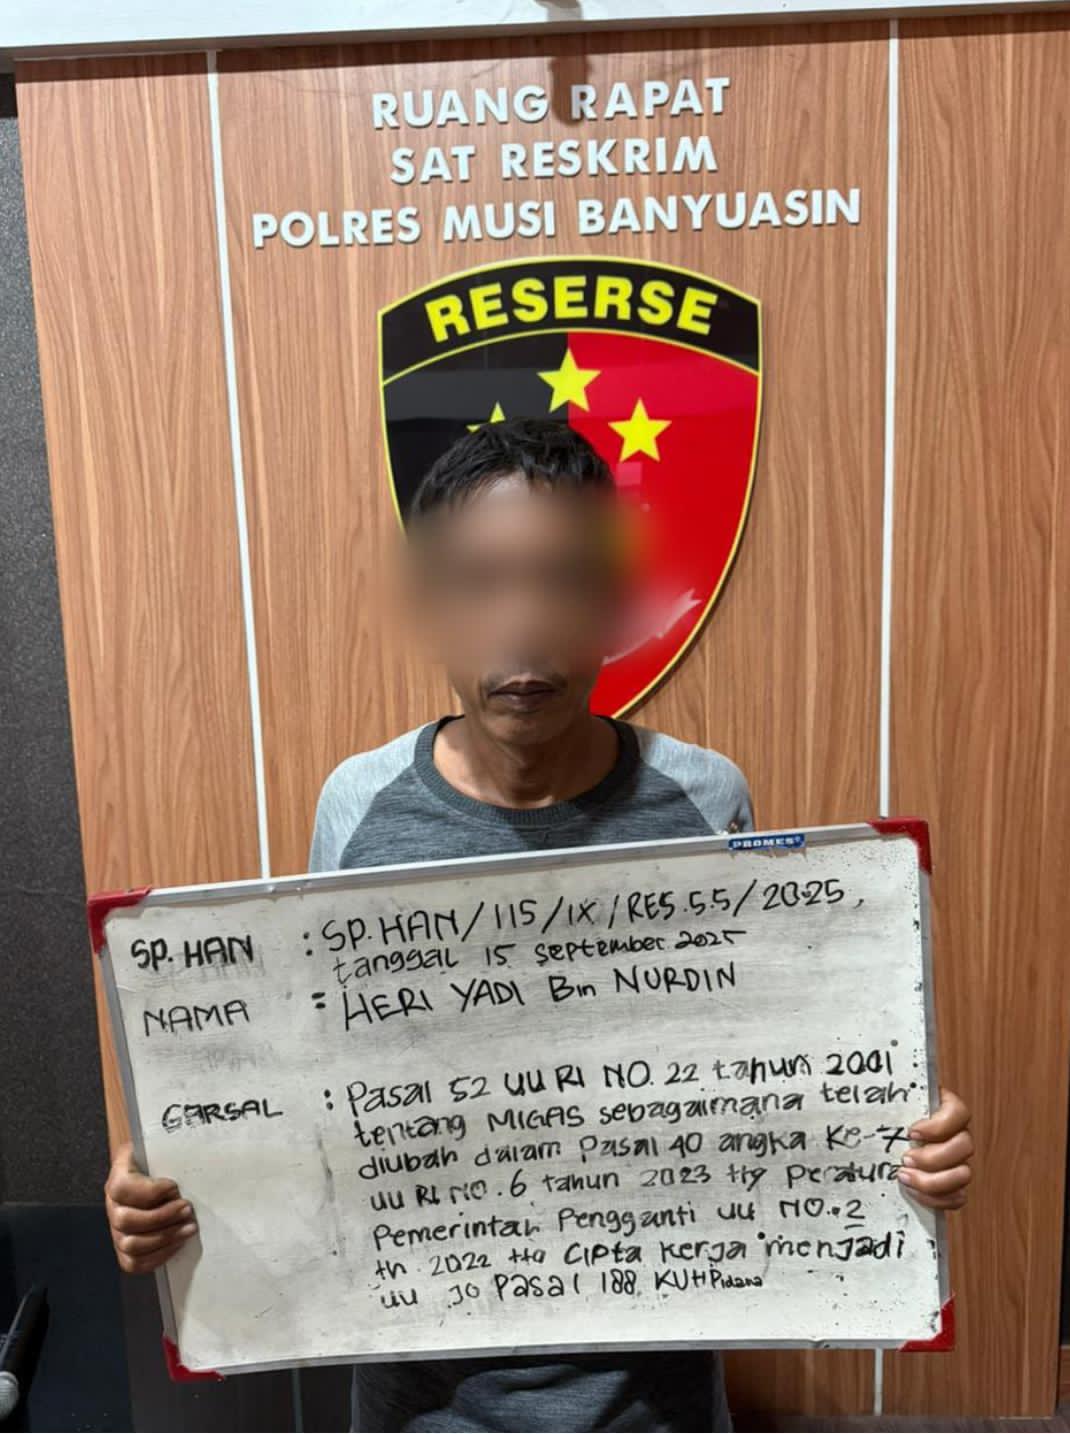 RUANG RAPAT
SAT RESKRIM
POLRES MUSI BANYUASIN
RESERSE
PROMES
SP. HAN : SP. HAN / 115 / IX / RES.5.5 / 2025,
tanggal 15 september 2025
NAMA : HERI YADI Bin NURDIN
GARSAL : Pasal 52 UU RI NO. 22 tahun 2001
tentang MIGAS sebagaimana telah
diubah dalam Pasal 40 angka Ke-7
UU RI NO. 6 tahun 2023 ttg Peratura
Pemerintah Pengganti UU NO. 2
th 2022 ttg Cipta Kerja menjadi
UU JO Pasal 188 KUHPidana